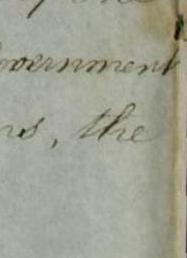 overnment
ns, the